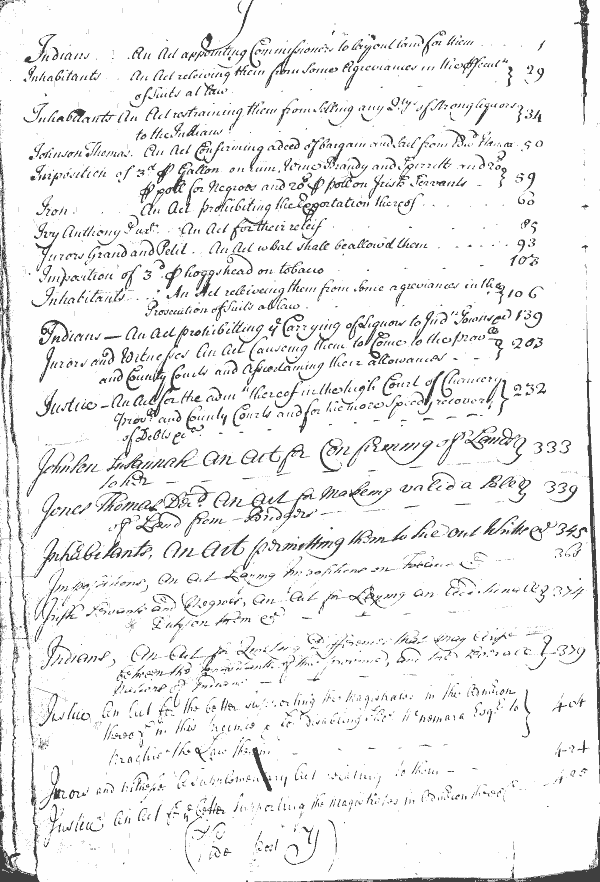 J
Indians . . . An Act appointing Commissioners to layout land for them . . . 1
Inhabitants . . An Act releiving them from some Agreivances in the
of Suits at law } 29
Inhabitants An Act restraining them from Selling any Qty of Strong liquors
to the Indians . } 34
Johnson Thomas. An Act Confirming a deed of bargain and Sail from 50
Imposition of 3d ⅌ Gallon on rum, Wine Brandy and Spirrits and 20s
⅌ poll for Negroes and 20s ⅌ poll on Irish Servants } 59
Iron : . . An Act prohibiting the Exportation thereof . . 60
Ivy Anthony . . An Act for their releif . . 85
Jurors Grand and Petit . . An Act what shall be allow'd them . . . . 93
Imposition of 3d ⅌ hoggshead on tobacco . . . 103
Inhabitants . . . An Act releiveing them from some agreivances in the
Prosecution of Suits at law . . } 106
Indians — An Act prohibitting ye Carrying of Liquors to Indn Towns &c 139
Jurors and Witnesses An Act Causeing them to Come to the
and County Courts and Assertaining their allowances } 203
Justice — An Act for the admn thereof in the high Court of Chancery
Provll and County Courts and for the more Speedy recovery
of Debts &c } 232
Johnson Susannah An Act for Confirming of Lands
to her } 333
Jones Thomas Decd An Act for Makeing valid a
of Land from Bridgers } 339
Inhabitants, An Act permitting them to sue out Writts &c 345
Impositions, An Act Laying Impositions on Tobacco &c 368
Irish Servants and Negroes, An Act for Laying an Additionall
Dutyson them &c } 374
Indians, An Act for Quieting Differences that may arise
between the Inhabitants of this Province, and the Severall
Nations of Indians } 379
Justice An Act for the better supporting the Magistrates in the Admion
thereof in this Province & for disabling Mcnemara Esqr to
practice the Law therein } 404
Jurors and Witnesses a supplementary Act relating to them — 424
Justice An Act for ye better Supporting the Magistrates in Admion thereof 425
Vide Post J